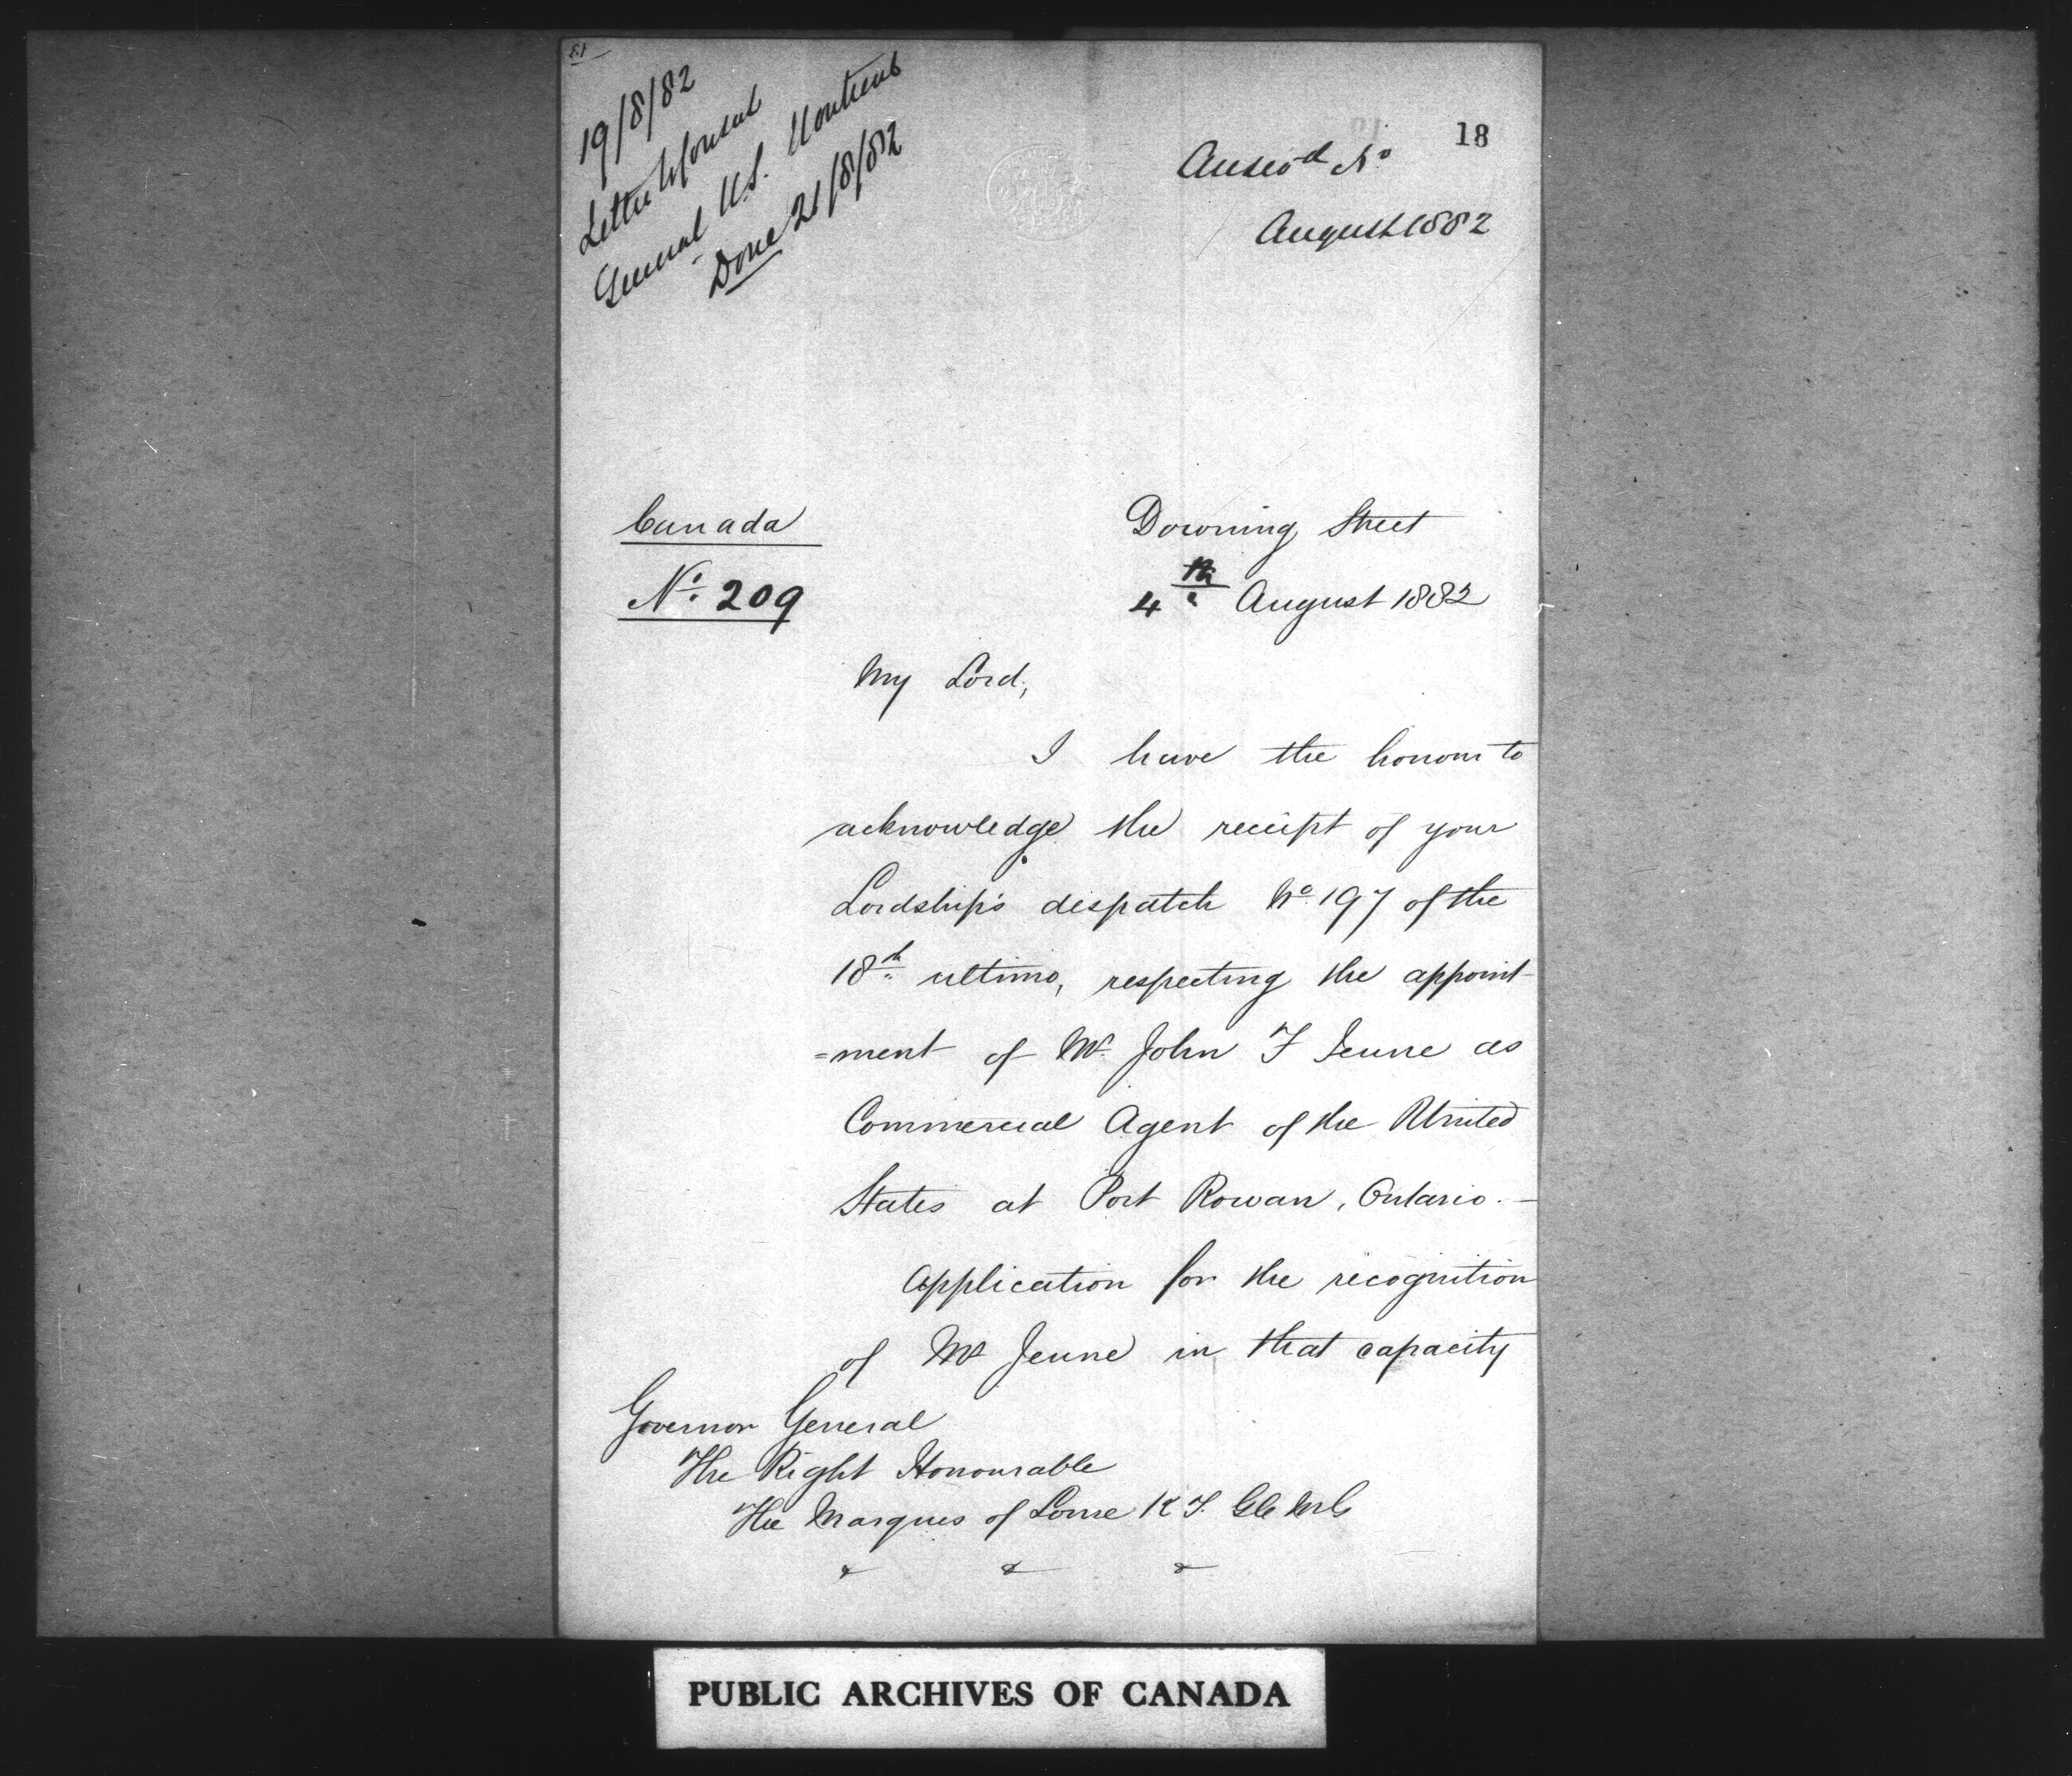 19/8/82
Letter to Consul
General U.S. Montreal
Done 21/8/82
18
Answd No
August 1882
Canada
No. 209
Downing Street
4th August 1882
My Lord,
I have the honour to
acknowledge the receipt of your
Lordship's dispatch No. 197 of the
18th ultimo, respecting the appoint-
=ment of Mr. John F Jeune as
Commercial Agent of the United
States at Port Rowan, Ontario.—
Application for the recognition
of Mr Jeune in that capacity
Governor General
The Right Honourable
The Marquis of Lorne K T. GCMG
& & &
PUBLIC ARCHIVES OF CANADA